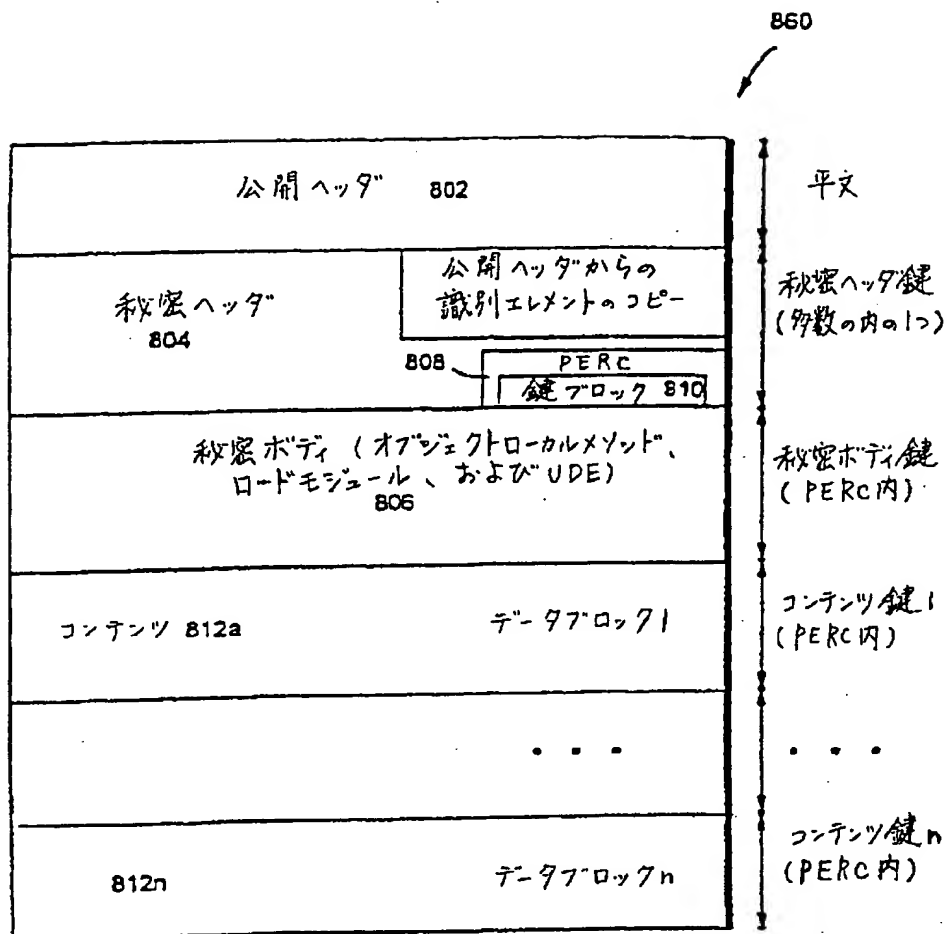 860
公開ヘッダ 802
平文
秘密ヘッダ
804
公開ヘッダからの
識別エレメントのコピー
808
PERC
鍵ブロック 810
秘密ヘッダ鍵
(多数の内の1つ)
秘密ボディ (オブジェクトローカルメソッド、
ロードモジュール、およびUDE)
806
秘密ボディ鍵
(PERC内)
コンテンツ 812a
データブロック1
コンテンツ鍵1
(PERC内)
• • •
• • •
812n
データブロックn
コンテンツ鍵n
(PERC内)